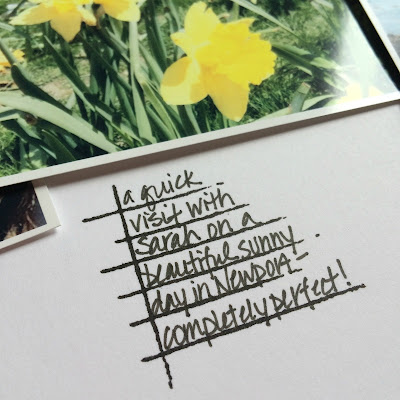 a quick
visit with
sarah on a
beautiful sunny
day in Newport -
completely perfect!